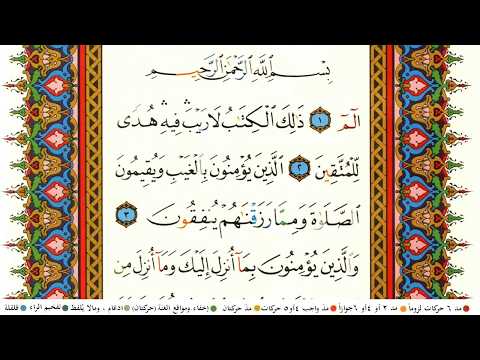 بِسْمِ اللَّهِ الرَّحْمَٰنِ الرَّحِيمِ
الٓمٓ ١ ذَٰلِكَ الْكِتَٰبُ لَا رَيْبَ ۛ فِيهِ ۛ هُدًى
لِّلْمُتَّقِينَ ٢ الَّذِينَ يُؤْمِنُونَ بِالْغَيْبِ وَيُقِيمُونَ
الصَّلَوٰةَ وَمِمَّا رَزَقْنَٰهُمْ يُنفِقُونَ ٣
وَالَّذِينَ يُؤْمِنُونَ بِمَآ أُنزِلَ إِلَيْكَ وَمَآ أُنزِلَ مِن
مد ٦ حركات لزوماً مد ٢ أو ٤ أو ٦ جوازاً مد واجب ٤ أو ٥ حركات مد حركتان إخفاء ومواقع الغنة (حركتان) ادغام ، ومالا يلفظ تفخيم الراء قلقلة